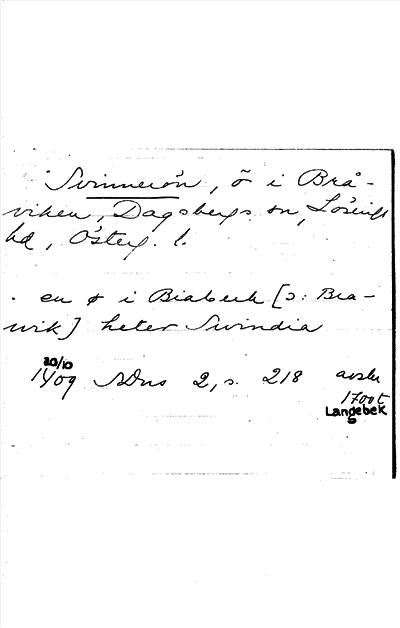 Svinnerön, ö i Brå-
viken, Dagsbergs sn, Lösings
hd, Österg. l.
· en ø i Biabeck [ɔ: Bra-
wik] heter Svindia
20/10
1409 SDns 2, s. 218 avskr
1700t
Langebek